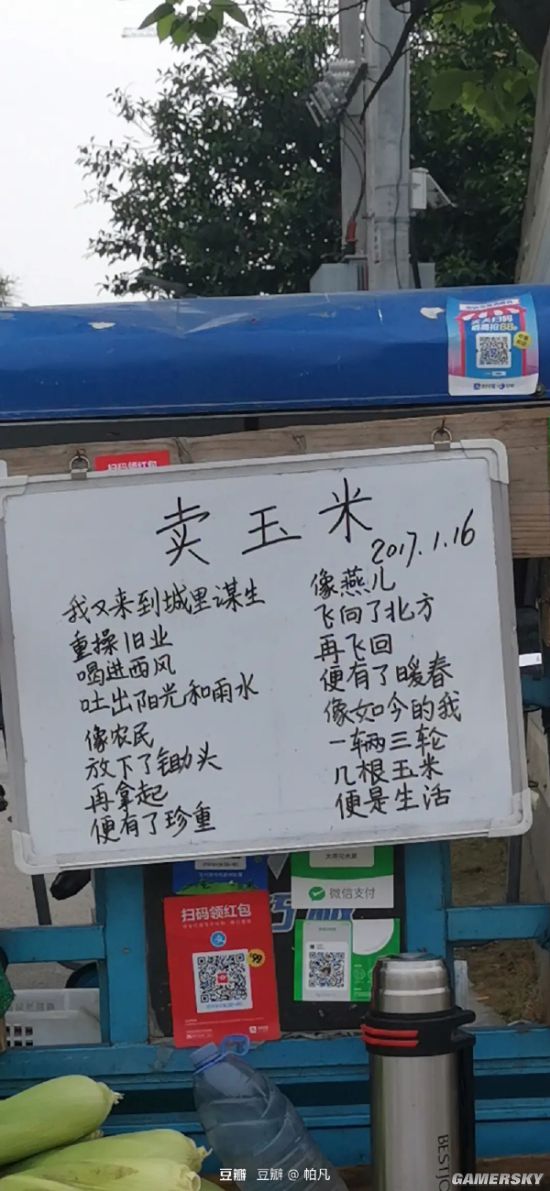 扫码领红包
卖玉米
2017.1.16
我又来到城里谋生
重操旧业
喝进西风
吐出阳光和雨水
像农民
放下了锄头
再拿起
便有了珍重
像燕儿
飞向了北方
再飞回
便有了暖春
像如今的我
一辆三轮
几根玉米
便是生活
微信支付
扫码领红包
BESTIO
豆瓣 豆瓣@帕凡
GAMERSKY